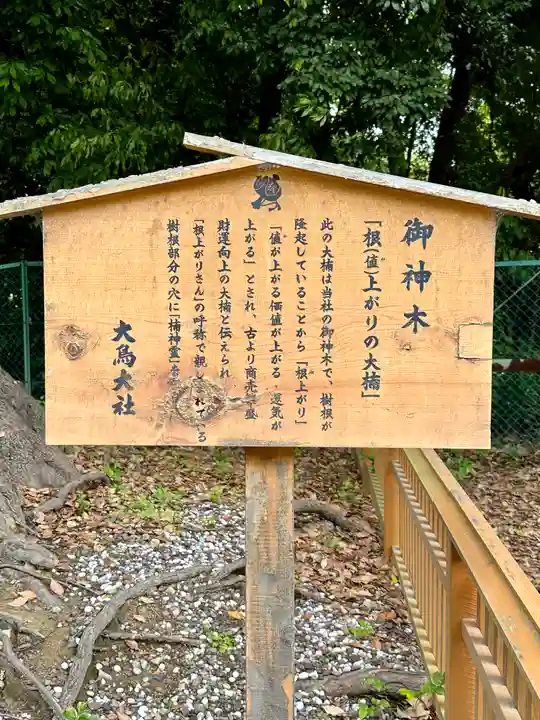 御神木
「根(値)上がりの大楠」
此の大楠は当社の御神木で、樹根が
隆起していることから「根上がり」
「値が上がる価値が上がる・運気が
上がる」とされ、古より商売
盛
財運向上の大楠と伝えられ
「根上がりさん」の呼称で親
れている
樹根部分の穴に「楠神霊」
大鳥大社